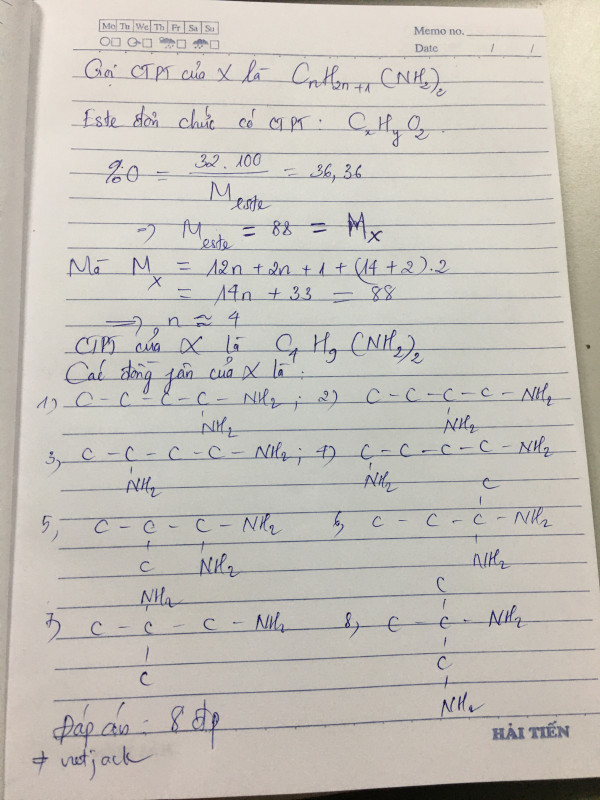 Mo Tu We Th Fr Sa Su
Memo no.
Date / /
Gọi CTPT của X là CnH2n+1(NH2)2
Este đơn chức có CTPT: CxHyO2.
%O = 32.100 / Meste = 36,36
=> Meste = 88 = MX
Mà MX = 12n + 2n + 1 + (14 + 2).2
= 14n + 33 = 88
=> n ≈ 4
CTPT của X là C4H9(NH2)2
Các đồng phân của X là:
1) C - C - C - C - NH2 ; 2) C - C - C - C - NH2
NH2 NH2
3, C - C - C - C - NH2 ; 4) C - C - C - C - NH2
NH2 NH2
C
5, C - C - C - NH2 6, C - C - C - NH2
C NH2 NH2
NH2 C
7) C - C - C - NH2 8, C - C - NH2
C C
NH2
Đáp án: 8 đp
HẢI TIẾN